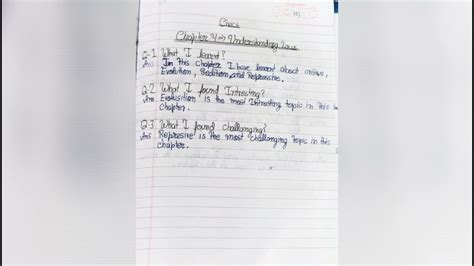 Civics
Chapter 4 => Understanding Laws
Q-1 What I learnt?
Ans In this chapter I have learnt about
Evolution, Sedition and Repressive.
Q-2 What I found Intresting?
Ans Evolution is the most Intresting topic in this
chapter.
Q-3 What I found challanging?
Ans Repressive is the most challanging topic in this
chapter.